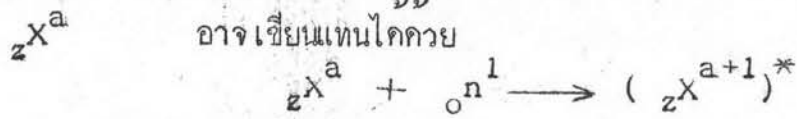 zXᵃ อาจเขียนแทนได้ด้วย
zXᵃ + ₀n¹ ⟶ ( zXᵃ⁺¹)*